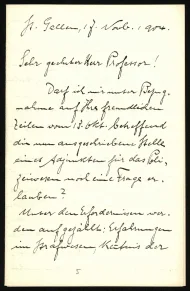 St. Gallen, 17. Novb. 1904.
Sehr geehrter Herr Professor!
Darf ich mir unter Bezug-
nahme auf Ihre freundlichen
Zeilen vom 17. Okt. betreffend
die nun ausgeschriebene Stelle
eines Adjunkten für das Poli-
zeiwesen noch eine Frage er-
lauben?
Unter den Erfordernissen wer-
den aufgezählt: Erfahrungen
im Strafwesen, Kentnis der